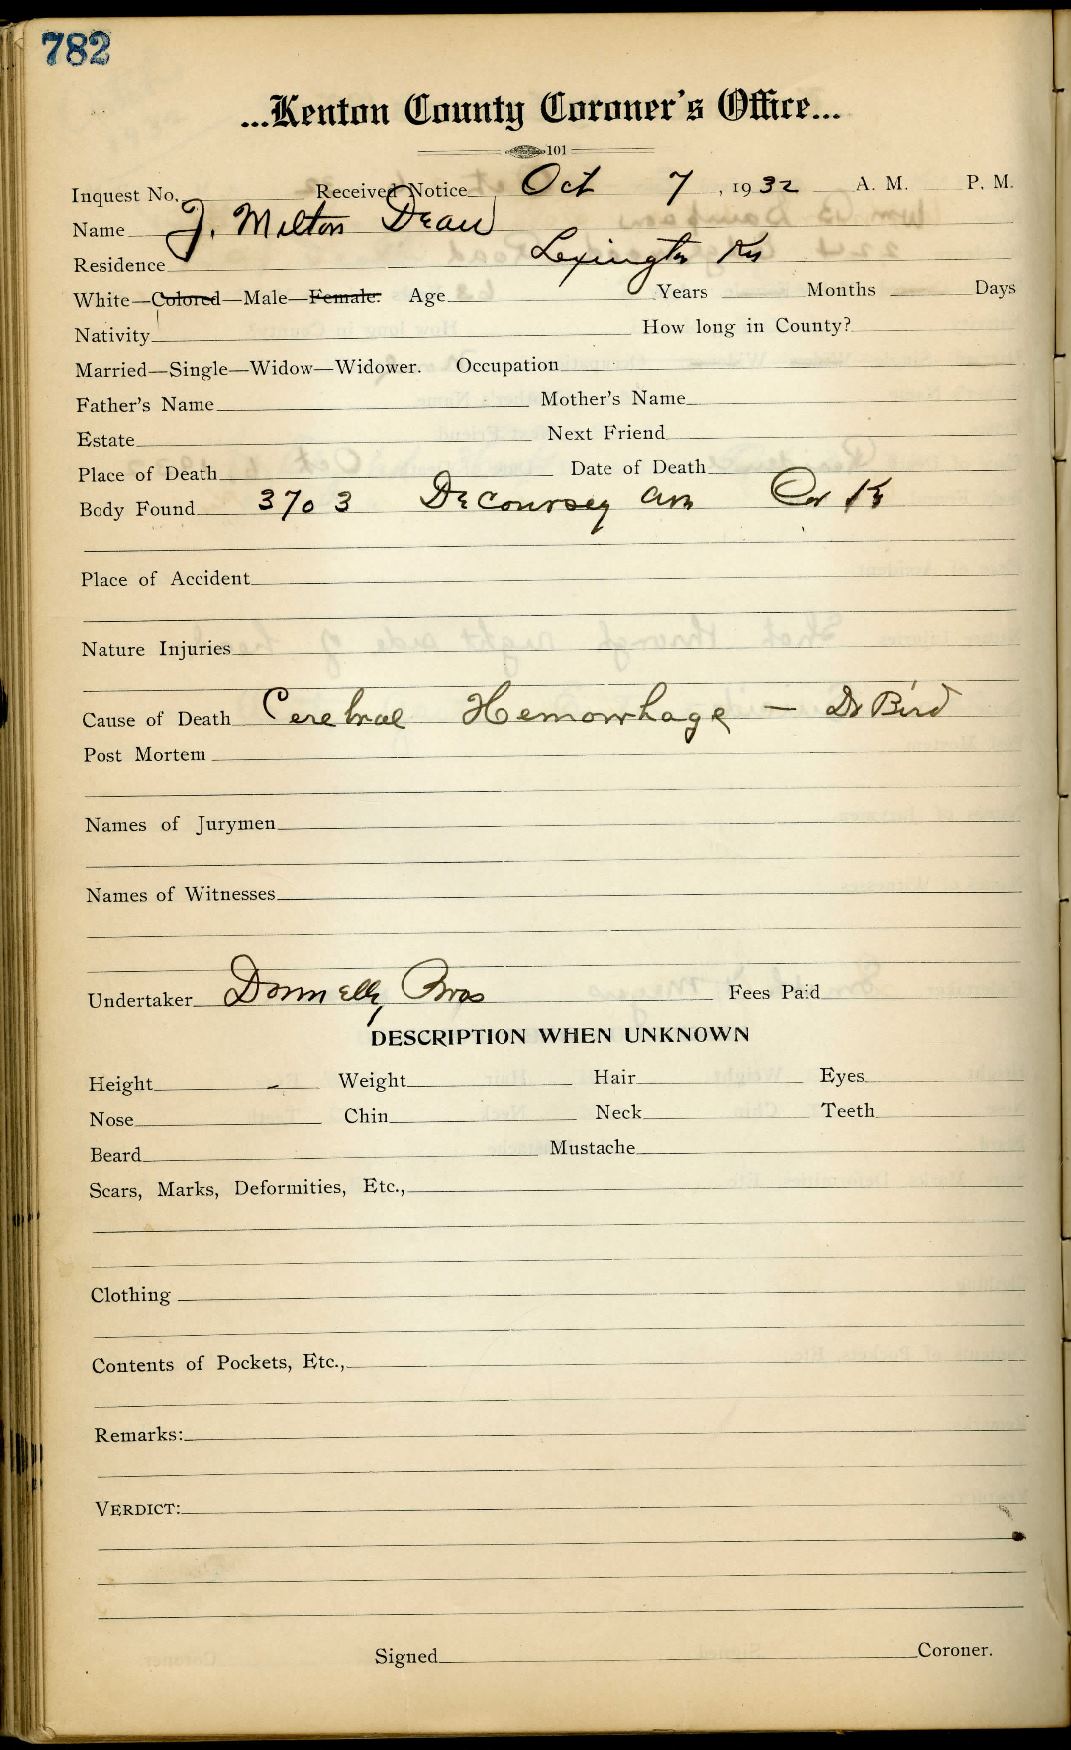 782
...Kenton County Coroner's Office...
101
Inquest No. Received Notice Oct 7, 1932 A. M. P. M.
Name J. Milton Dean
Residence Lexington Ky
White—Colored—Male—Female. Age Years Months Days
Nativity How long in County?
Married—Single—Widow—Widower. Occupation
Father's Name Mother's Name
Estate Next Friend
Place of Death Date of Death
Body Found 3703 Decoursey Ave Cov Ky
Place of Accident
Nature Injuries
Cause of Death Cerebral Hemorrhage — Dr Bird
Post Mortem
Names of Jurymen
Names of Witnesses
Undertaker Donnelly Bros Fees Paid
DESCRIPTION WHEN UNKNOWN
Height - Weight Hair Eyes
Nose Chin Neck Teeth
Beard Mustache
Scars, Marks, Deformities, Etc.,
Clothing
Contents of Pockets, Etc.,
Remarks:
VERDICT:
Signed Coroner.